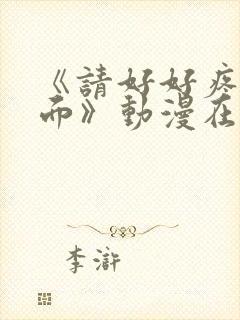 《請好好疼
而》動漫在
李滸